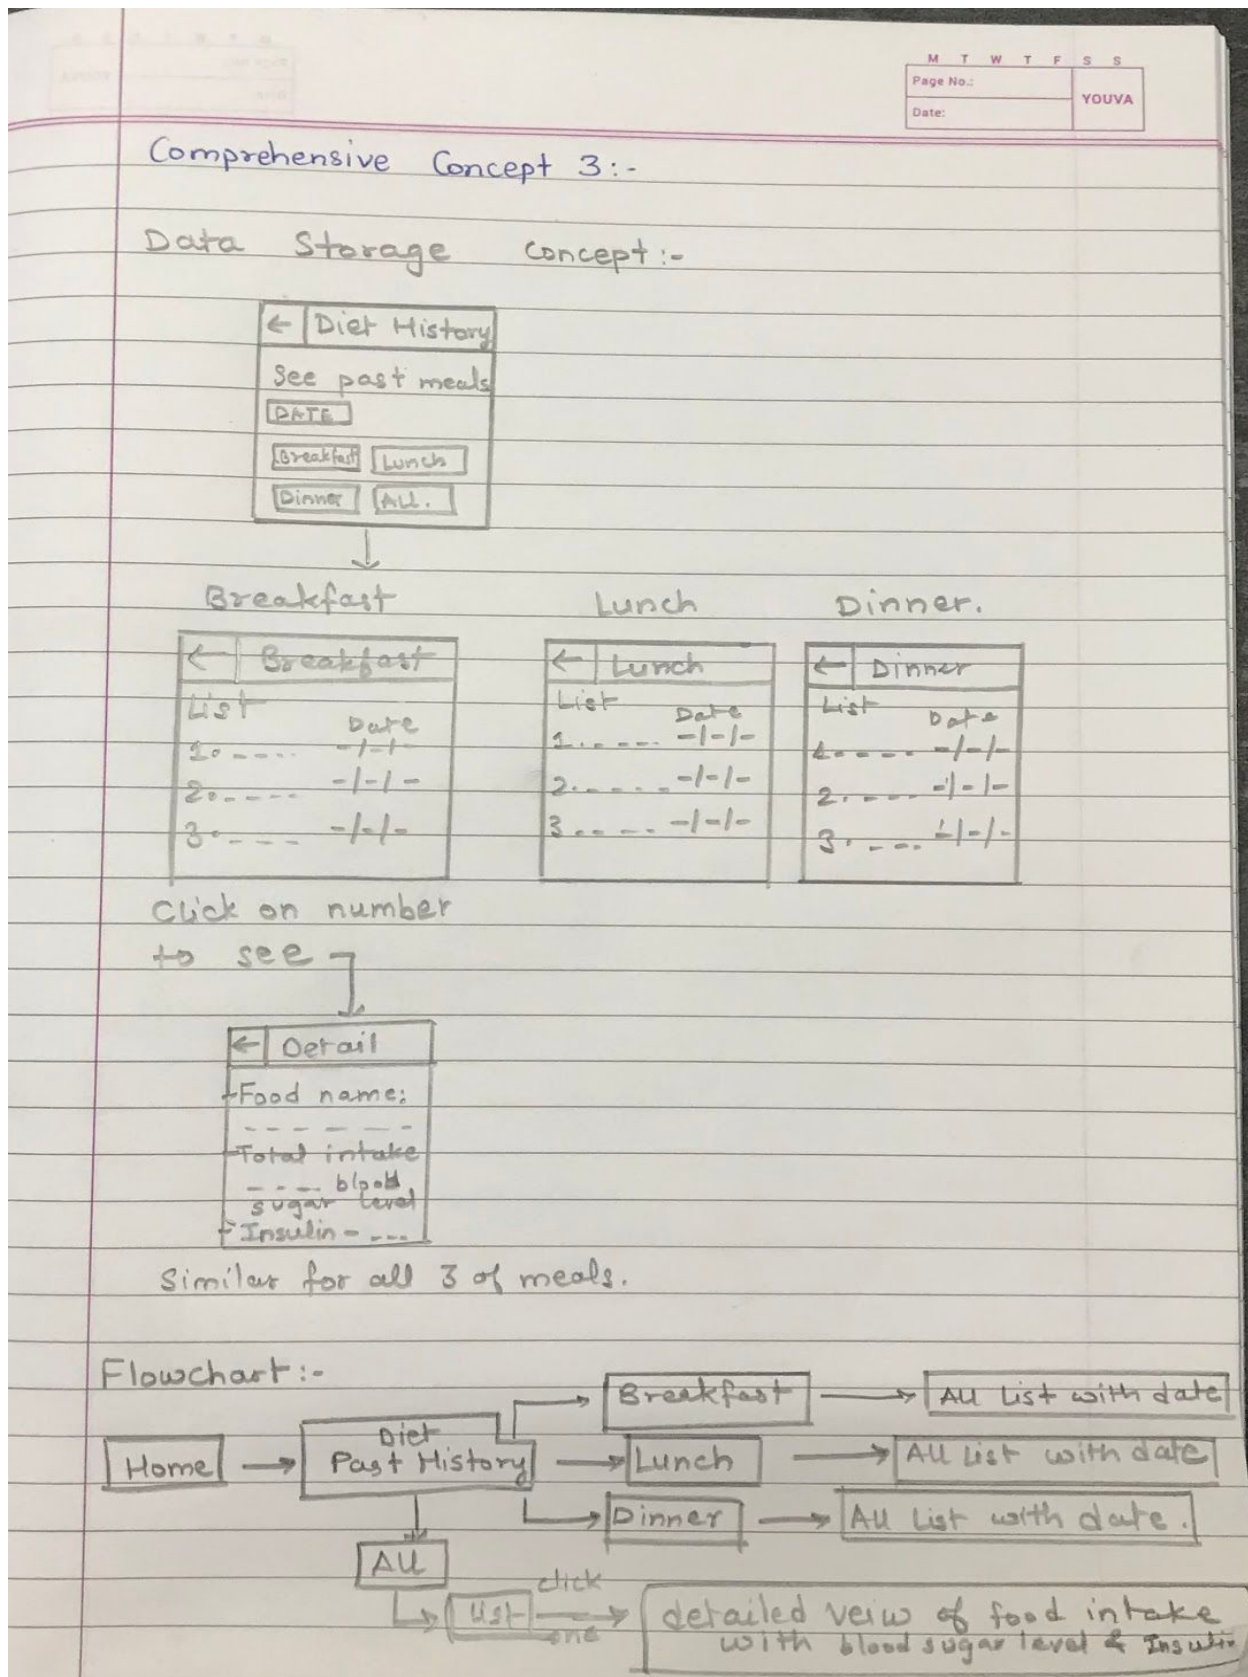 M T W T F S S
Page No.:
YOUVA
Date:
Comprehensive Concept 3:-
Data Storage Concept:-
← Diet History
See past meals
DATE
Breakfast Lunch
Dinner ALL.
Breakfast Lunch Dinner.
← Breakfast
List
Date
1. ---- -/-/-
2. ----- -/-/-
3. ---- -/-/-
← Lunch
List Date
1. ----- -/-/-
2. ----- -/-/-
3 ----- -/-/-
← Dinner
List Date
1. ----- -/-/-
2. ---- -/-/-
3. ---- -/-/-
Click on number
to see
← Detail
-Food name:
------
-Total intake
---- blood
sugar level
-Insulin - ---
Similar for all 3 of meals.
Flowchart:-
Home → Diet Past History
→ Breakfast → All List with date
→ Lunch → All List with date
→ Dinner → All List with date.
All
List click one → detailed veiw of food intake
with blood sugar level & Insulin